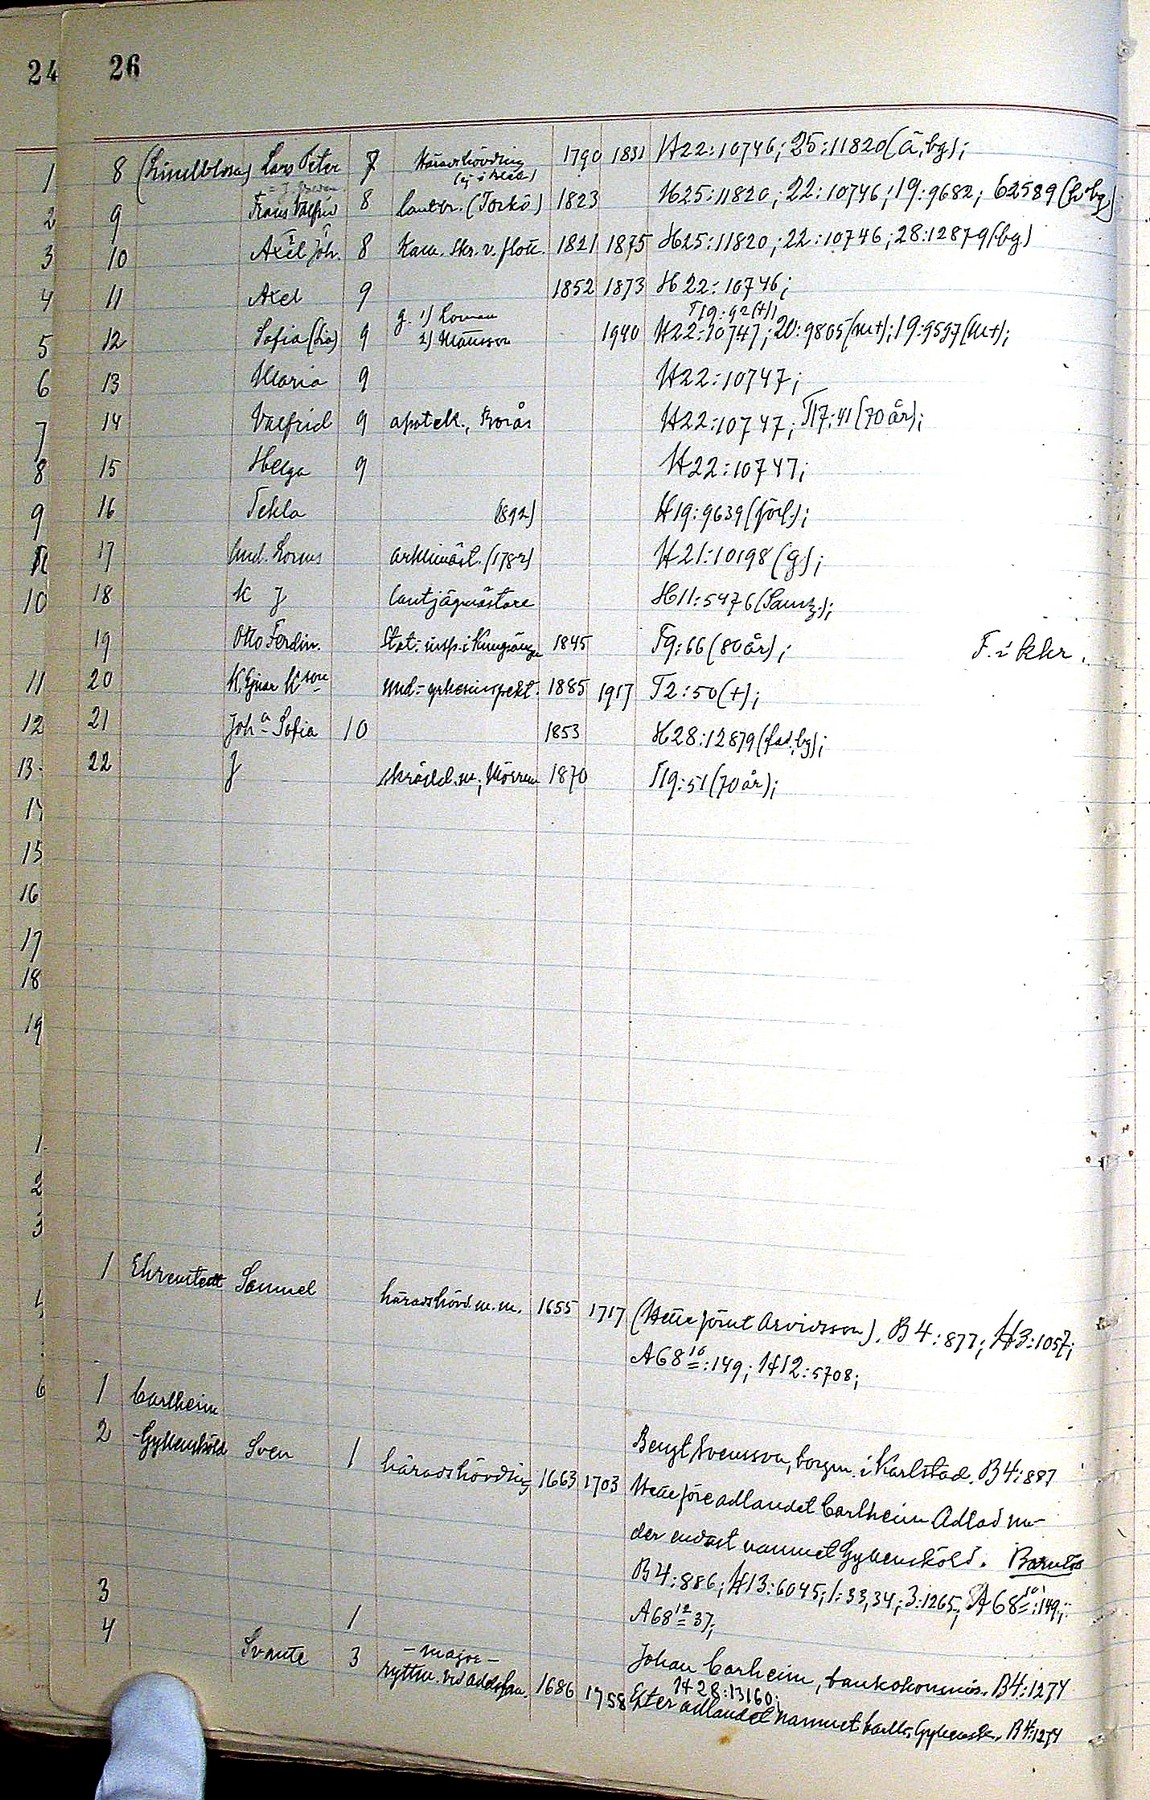 24 26
1 8 (Lindblom) Lars Peter 7 Häradshövding 1790 1831 H22:10746; 25:11820(ä,bg);
2 9 Frans Valfrid 8 lantbr. (Torkö) 1823 H25:11820; 22:10746; 19:9682; 62589(h bg)
3 10 Axel Joh. 8 Kam. skr. v. flott. 1821 1875 H25:11820; 22:10746; 28:12879(bg)
4 11 Axel 9 1852 1873 H22:10746;
T19:92(+);
5 12 Sofia (Fia) 9 g. 1) Loman 1940 H22:10747; 20:9805(m+); 19:9597(m+);
2) Månsson
6 13 Maria 9 H22:10747;
7 14 Valfrid 9 apotek., Borås H22:10747; T17:41(70 år);
8 15 Helga 9 H22:10747;
9 16 Tekla (1892) H19:9639(förl);
17 And. Lorens arklimäst. (1782) H21:10198(g);
10 18 K J lantjägmästare H11:5476
19 Otto Ferdin. Stat.-insp. i Kungsänge 1845 T9:66(80 år); F. i
11 20 K. Ejnar K son und.-yrkesinspekt. 1885 1917 T2:50(+);
12 21 Joh a Sofia 10 1853 H28:12879(fad,bg);
13 22 J skrädd.m; Mörrum 1870 T19:51(70 år);
14
15
16
17
18
19
1
2
3
1 Ehrenstedt Samuel häradshövd. m.m. 1655 1717 (Hette förut Arvidsson). B4:877; H3:1057;
A68 16:149; H12:5708;
6 1 Carlheim
2 -Gyllensköld Sven 1 häradshövding 1663 1703 Bengt Svensson, borgm. i Karlstad. B4:887
Hette före adlandet Carlheim Adlad un-
der endast namnet Gyllensköld. Barnlös
3 B4:886; H13:6045; 1:33,34; 3:1265; A68 16:149;
1 A68 12 37;
4 Svante 3 -major- Johan Carheim, bankokommis. B4:1274
ryttm. vid adelsfan. 1686 1758 H28:13160;
Efter adlandet namnet Carlh. Gyllensk. B4:1274